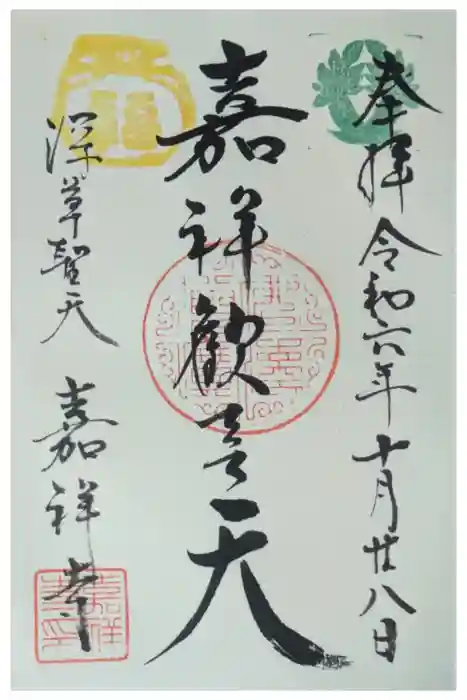 奉拝 令和六年十月廿八日
嘉祥歓喜天
深草聖天 嘉祥寺